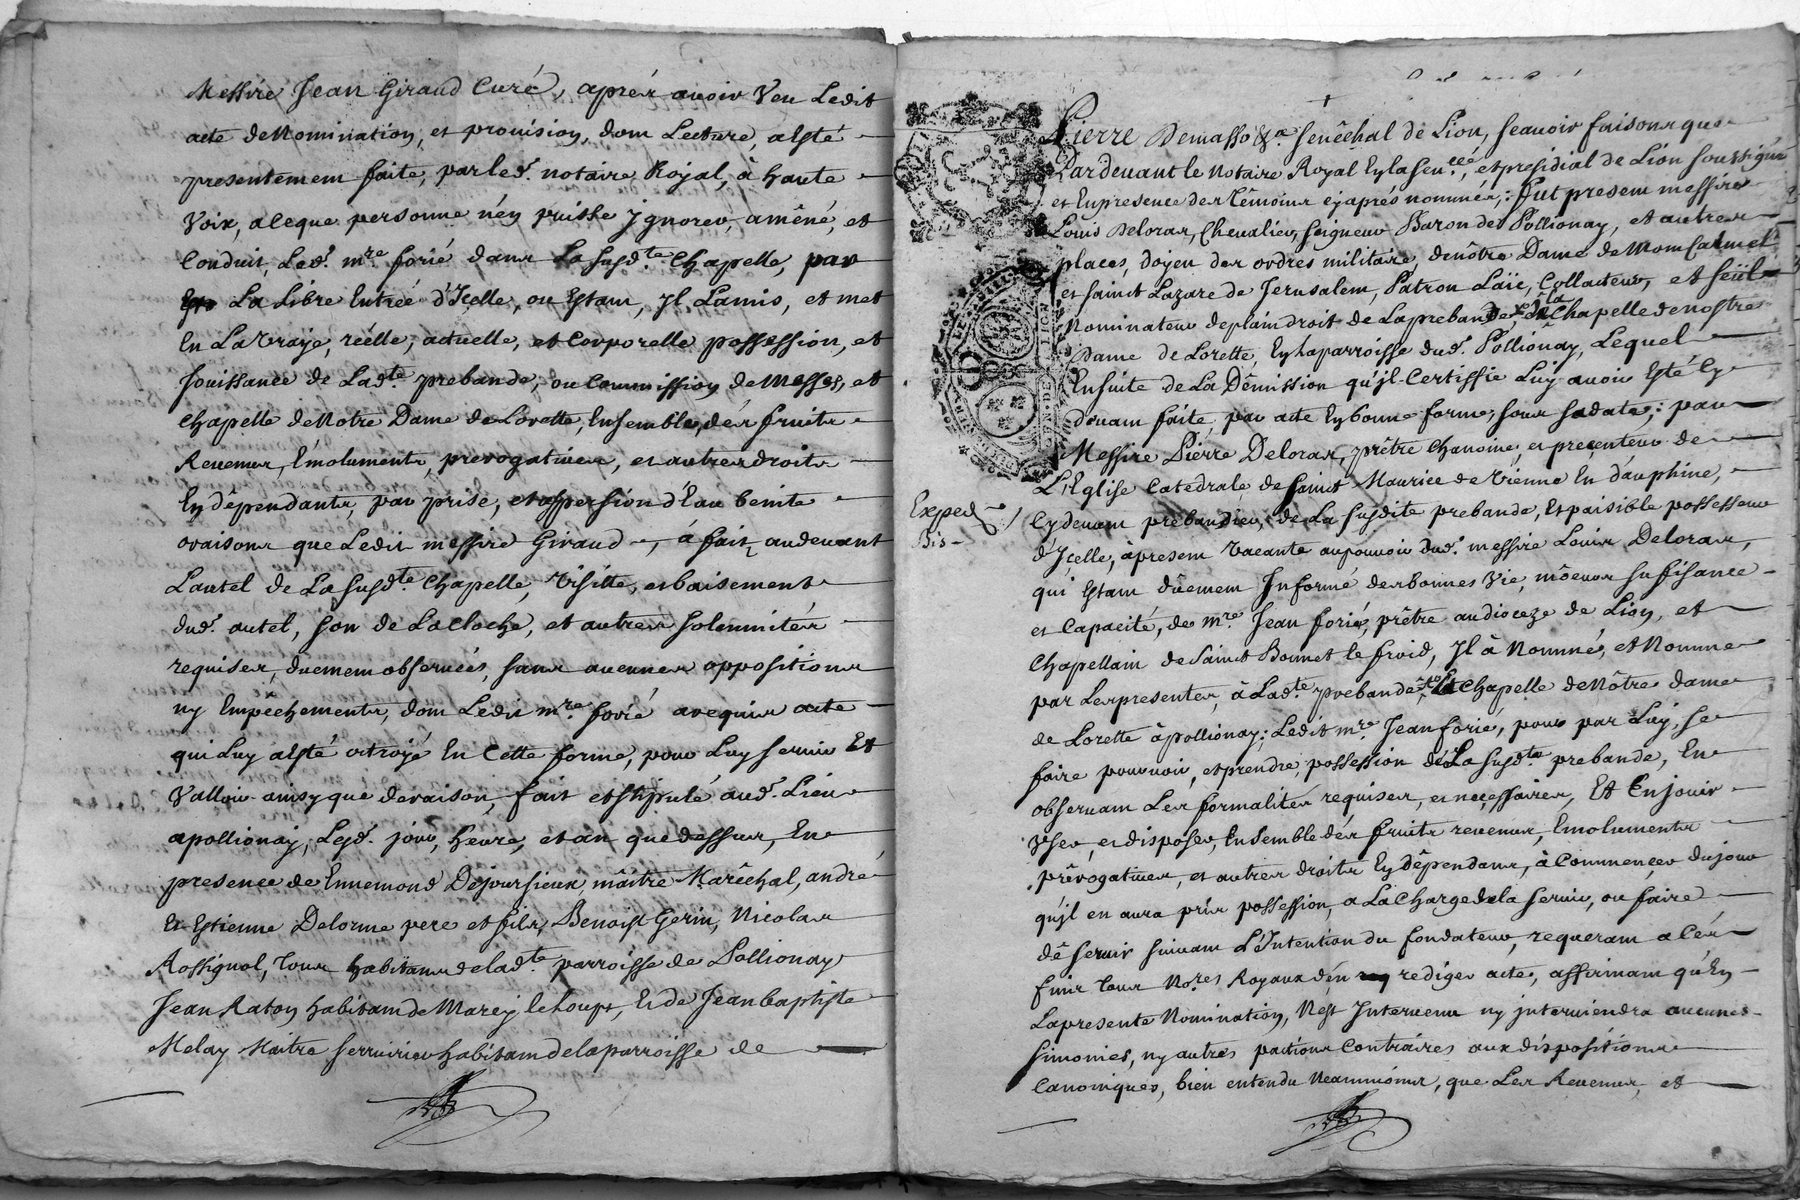 Messire Jean Giraud Curé, aprés avoir Veu Ledit
acte de Nomination, et provision, dont Lecture, a Esté
presentement faite, par led. notaire Royal, à haute
Voix, aleque personne n'én puisse Jgnorer, améné, et
Conduit, Led. mre forié dans La susd.te Chapelle, par
La Libre Entrée d'Jcelle, ou Estant, Jl Lamis, et met
En La Vraÿe, réélle, actuelle, et Corporelle possession, et
Jouissance de Lad.te prebande, ou Commission de Messes, et
Chapelle de Notre Dame de Lorette, Ensemble, dés fruits
Revenus, Émoluments, prerogatives, et autres droits
En dépendants, par prise, et aspersion d'Eau benite
oraisons que Ledit messire Giraud, à fait, audevant
Lautel de La susd.te Chapelle, Visitte, et baisement
dud. autel, son de La Cloche, et autres solemnités
requises, duement observées, sans aucunes oppositions
ny Empéchements, dont Ledit mre. forié arequis acte
qui Luy a Esté octroÿé En Cette forme, pour Luy servir Et
Valloir ainsy que de raison, fait et stipulé aud. Lieu
apollionaÿ, Lesd. jour, heure, et an que dessus, En
presence de Ennemond Dejoursieux, maître Maréchal, andré
Et Estienne Delorme pere et fils, Benoist Gerin, Nicolas
Rossignol, Tous habitans de lad.te parroisse de Pollionay
Jean Raton habitant de Marcy le Loups, Et de Jean baptiste
Melay Maitre serrurier habitant de la parroisse de
Pierre Demasso &a. senéchal de Lion, scavoir faisons que
Pardevant le Notaire Royal En la Sen.cée, et presidial de Lion soussigné
et En presence des témoins cÿ aprés nommés; fut present messire
Louis Deloras, Chevalier, seigneur Baron de Pollionay, et autres
places, doyen des ordres militaire, de nôtre Dame de Mont Carmel
et sainct Lazare de Jerusalem, Patron Laïc, Collacteur, et seüil
Nominateur de plain droit de La prebande, de la Chapelle de nostre
Dame de Lorette, En la parroisse dud. Pollionay, Lequel
Ensuite de La Démission qu'jl Certiffie Luy avoir Esté Cy
devant faite, par acte En bonne forme, sous sa date; par
Messire Pierre Deloras, prêtre Chanoine, et precenteur de
L'Eglise Catedrale de sainct Maurice de Vienne En dauphine,
Exped
Cydevant prebandier, de La susdite prebande, Et paisible possesseur
bis
d'Jcelle, àpresent Vacante aupouvoir dud. messire Louis Deloras,
qui Estant düement Jnformé des bonnes Vie, môeurs sufisance
et Capacité, de mre. Jean forié, prêtre audioceze de Lion, et
Chapellain de Sainct Bonnet le froid, Jl à Nommé, et Nomme
par Les presentes, à Lad.te prebande, de la Chapelle de Nôtre dame
de Lorette àpollionay; Ledit mre Jean forié, pour par Luy, se
faire pourvoir, et prendre, possession de La susd.te prebande, En
observant Les formalités requises, et necessaires, Et En jouir
Vser, et disposer, Ensemble dés fruits revenus, Emoluments
prérogatives, et autres droits En dépendans, à Commencer du jour
qu'jl en aura pris possession, a La Charge de la servir, ou faire
dé servir suivant L'Intention du fondateur, requerant a Cés
fins Tous No.res Royaux d'én rediger acte, affirmant qu'En
La presente Nomination, N'ést Jntervenu ny jnterviendra aucunes
simonies, ny autres pactions Contraires aux dispositions
Canoniques, bien entendu Neammoins, que Les Revenus, et